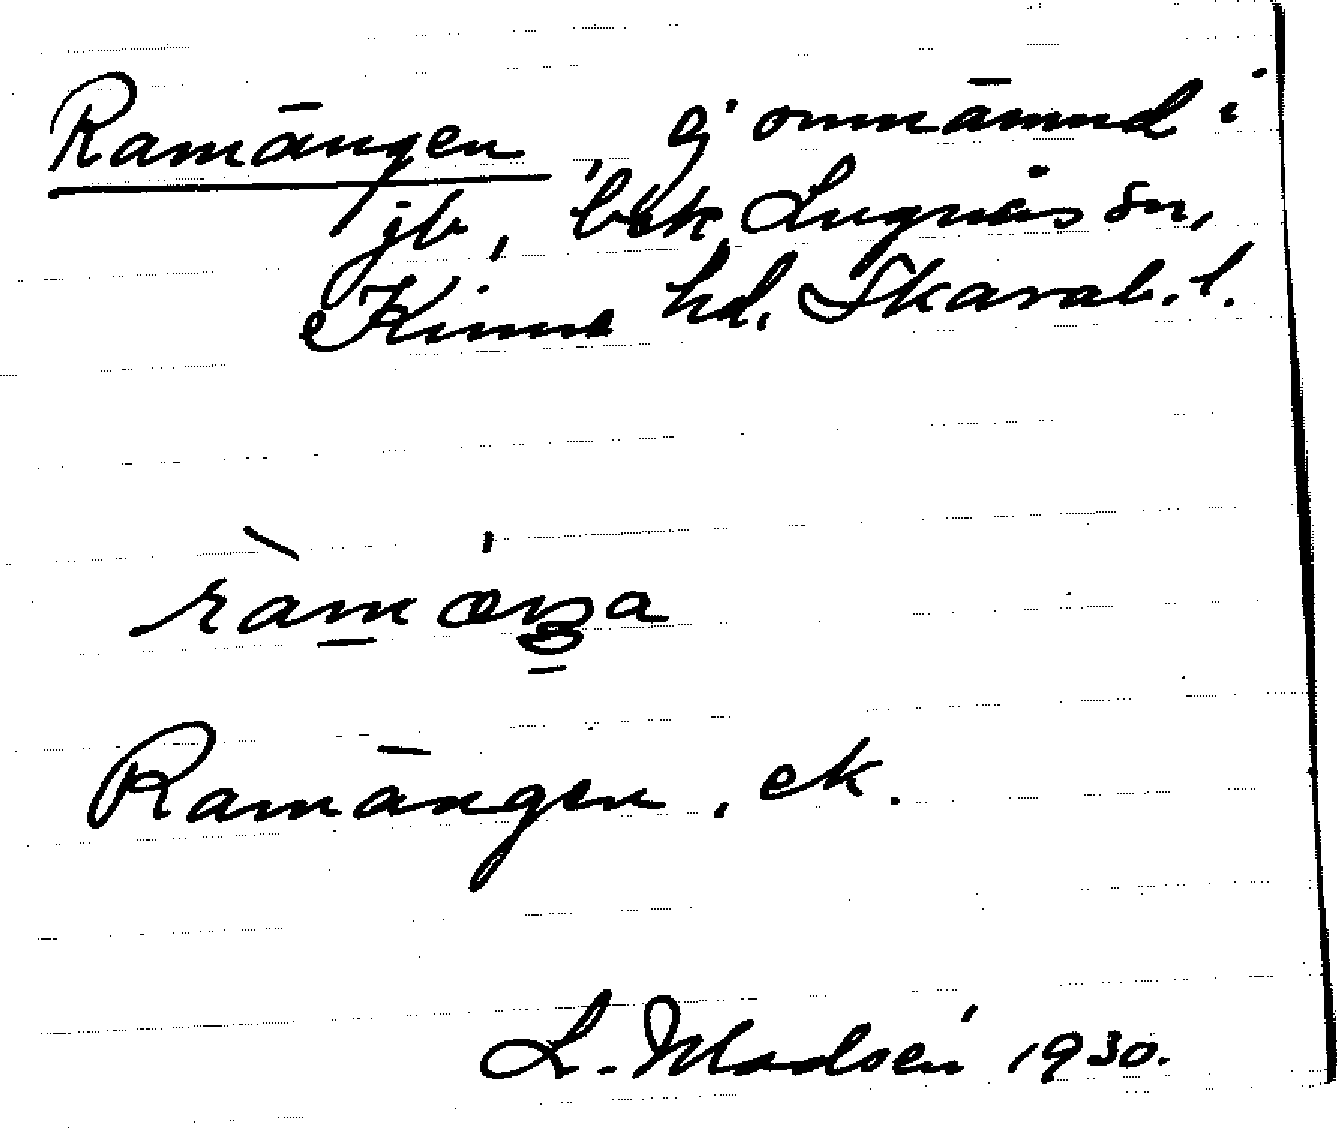 Ramängen, ej omnämnd i
jb, bek Lugnås sn,
Kinne hd, Skarab. l.
Ramängen, ek.
L. Madsén 1930.